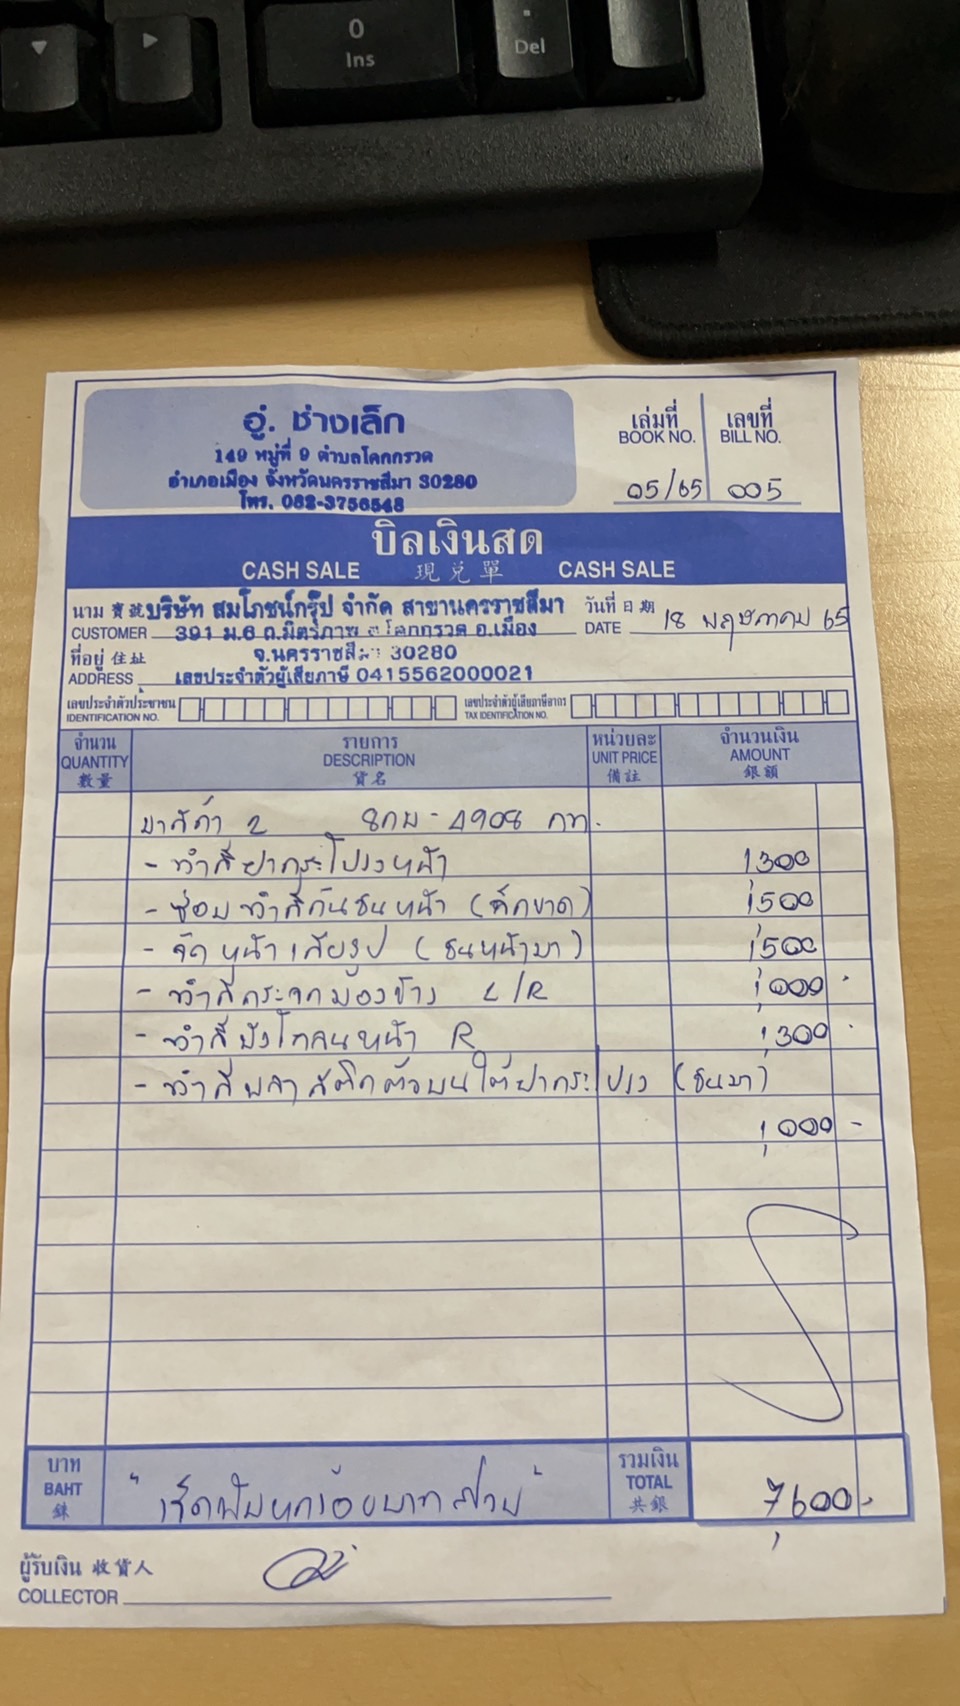 0
Ins
Del
อู่. ช่างเล็ก
149 หมู่ที่ 9 ตำบลโคกกรวด
อำเภอเมือง จังหวัดนครราชสีมา 30280
โทร. 082-3756548
เล่มที่
BOOK NO.
05/65
เลขที่
BILL NO.
005
บิลเงินสด
CASH SALE 現兌單 CASH SALE
นาม 寳號 บริษัท สมโภชน์กรุ๊ป จำกัด สาขานครราชสีมา
CUSTOMER 391 ม.6 ถ.มิตรภาพ ต.โคกกรวด อ.เมือง
ที่อยู่ 住址 จ.นครราชสีมา 30280
ADDRESS เลขประจำตัวผู้เสียภาษี 0415562000021
วันที่ 日期
DATE 18 พฤษภาคม 65
เลขประจำตัวประชาชน
IDENTIFICATION NO.
เลขประจำตัวผู้เสียภาษีอากร
TAX IDENTIFICATION NO.
จำนวน
QUANTITY
數量
รายการ
DESCRIPTION
貨名
หน่วยละ
UNIT PRICE
備註
จำนวนเงิน
AMOUNT
銀額
มาสด้า 2 8กม-4908 กท.
- ทำสีฝากระโปรงหน้า 1,300
- ซ่อม ทำสีกันชนหน้า (ฉีกขาด) 1,500
- จัดหน้า เสียรูป (ชนหน้ามา) 1,500
- ทำสีกระจกมองข้าง L/R 1,000
- ทำสีบังโคลนหน้า R 1,300
- ทำสีพลาสติกตัวบนใต้ฝากระโปรง (ชนมา)
1,000 -
บาท
BAHT
銖
"เจ็ดพันหกร้อยบาทถ้วน"
รวมเงิน
TOTAL
共銀
7,600.-
ผู้รับเงิน 收貨人
COLLECTOR